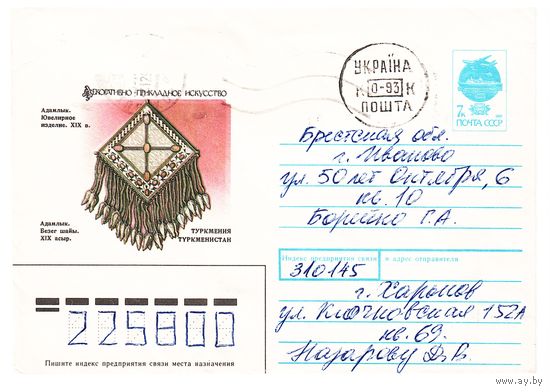 УКРАЇНА
0-93
К
ПОШТА
7к
ПОЧТА СССР
ДЕКОРАТИВНО-ПРИКЛАДНОЕ ИСКУССТВО
Адамлык.
Ювелирное
изделие. XIX в.
Адамлык.
Безег шайы.
XIX асыр.
ТУРКМЕНИЯ
ТҮРКМЕНИСТАН
Брестская обл.
г. Иваново
ул. 50 лет Октября, 6
кв. 10
Г.А.
Индекс предприятия связи и адрес отправителя
310145
г. Харьков
ул. Клочковская 152А
кв. 69.
Назарову Д.В.
225800
Пишите индекс предприятия связи места назначения
www.ay.by